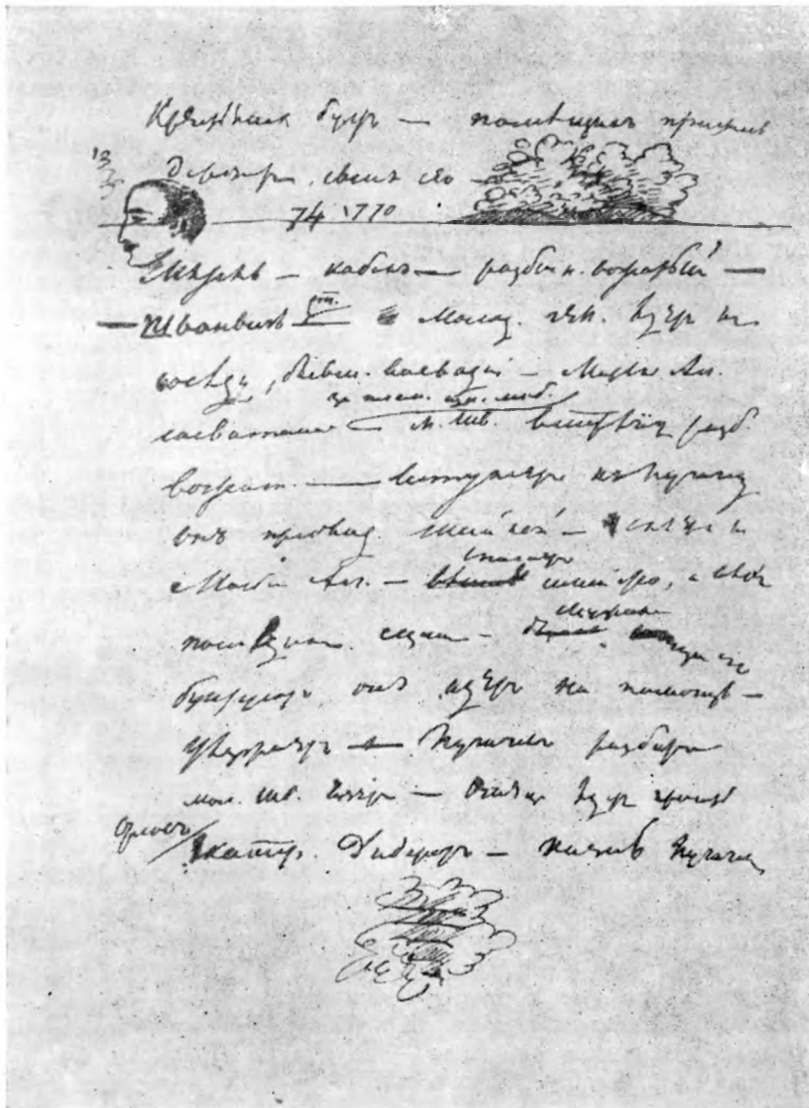 Крестьянск. бунт — помещикъ пристань
держитъ, сынъ его —
13
74 1770
Мятель — кабакъ — разбойн. вожатый —
— Шванвичь ст. — Молод. чел. едетъ къ
соседу, бывш. воеводой — Марья Ал.
сосватана за плем. кот. не люб. М. Шв. встречаетъ разб.
вожат. — вступаетъ къ Пугачеву
онъ предвод. шайкой — является къ
Марье Ал. — спасаетъ семейство и всехъ
последняя сцена — мужики отца его
бунтуютъ, онъ идетъ на помощь —
уезжаетъ — Пугачевъ разбитъ
мол. Шв. взятъ — отецъ едетъ просить
Орловъ
Екатер. Дидеротъ — казнь Пугачева